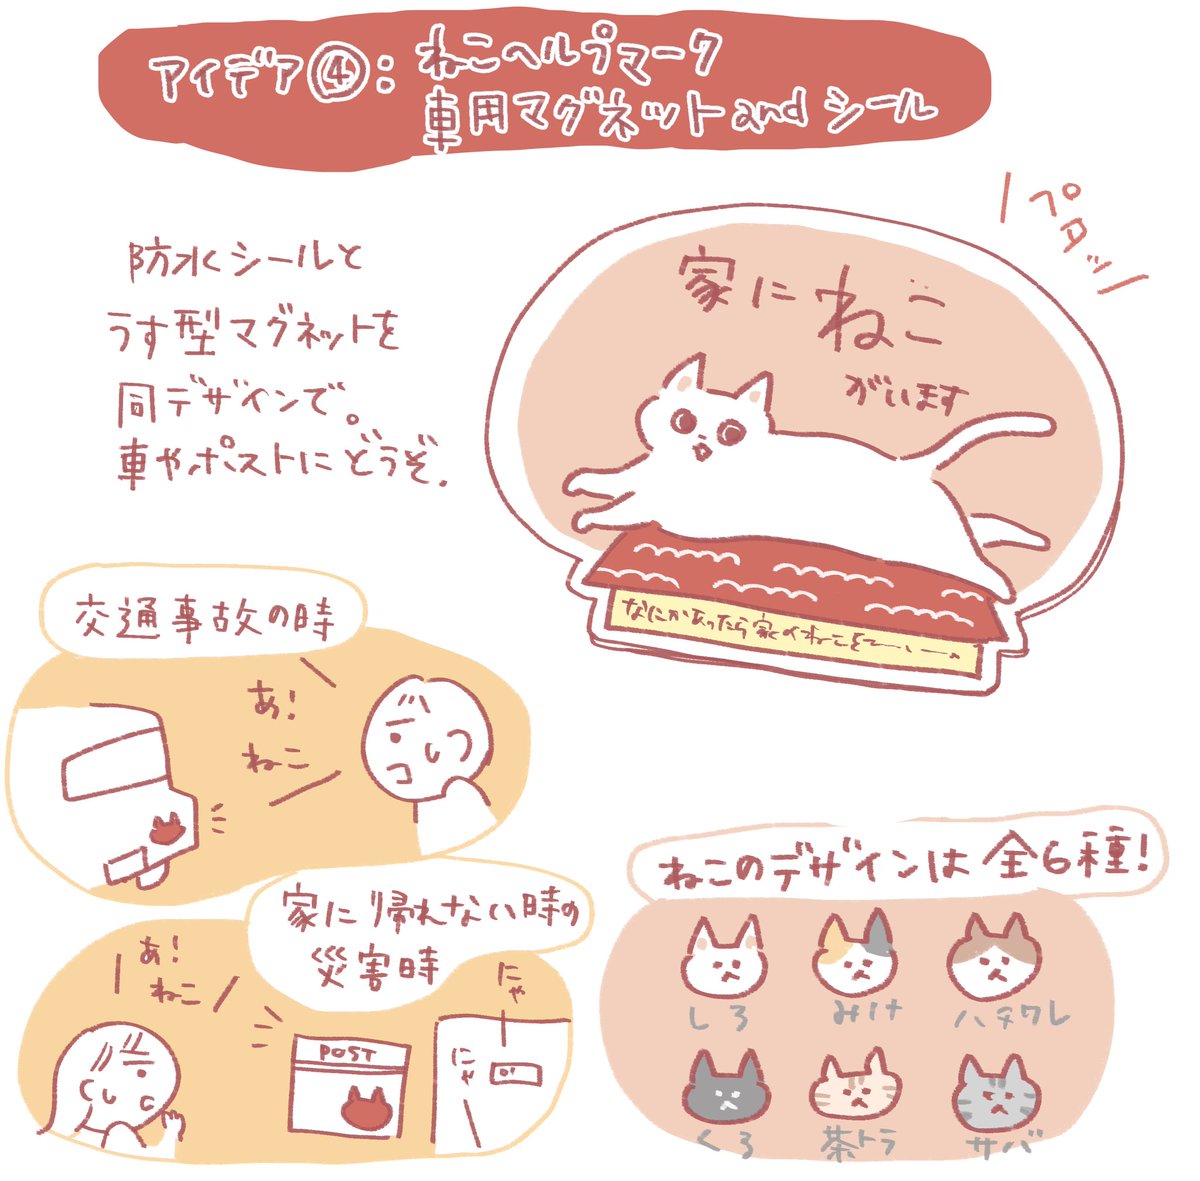 アイデア④:
ねこヘルプマーク
車用マグネットandシール
\ペタッ/
防水シールと
うす型マグネットを
同デザインで。
車やポストにどうぞ.
家にねこ
がいます
なにかあったら家のねこを〜、、ー。
交通事故の時
あ!
ねこ
家に帰れない時の
災害時
あ!
ねこ
POST
にゃ
にゃ
ねこのデザインは全6種!
しろ
みけ
ハチワレ
くろ
茶トラ
サバ